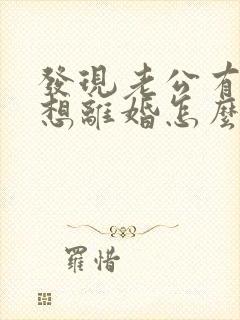 發現老公有
想離婚怎麼
羅惜